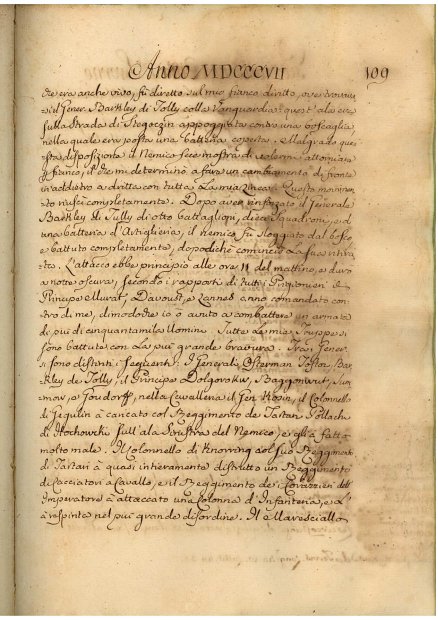 Anno MDCCCVII 109
che era anche vivo, fù diretto sul mio fianco diritto, ove trovavasi
il Gener. Barkley di Tolly colla Vanguardia: quest'ala era
sulla Strada di Stegoczin appoggiata contro una boscaglia,
nella quale era posta una batteria coperta. Malgrado que
sta disposizione il Nemico fece mostra di volermi attorniare
il fianco, il che mi determinò a fare un cambiamento di fronte
in addietro a dritta con tutta la mia Linea. Questo movimen
to riuscì completamente. Dopo aver rinforzato il Generale
Barkley di Tolly di otto battaglioni, dieci Squadroni, e d
una batteria d'Artiglieria, il nemico fù sloggiato dal bosco
e battuto completamente, dopodiche cominciò la sua ritira
ta. L'attacco ebbe principio alle ore 11 del mattino, e durò
a notte oscura, secondo i rapporti di tutti i Prigionieri il
Principe Murat, Davoust, e Lannes anno comandato con
tro di me, dimodoche io ò avuto a combattere un armata
di più di cinquantamila Uomini. Tutte le mie Truppe si
sono battute con la più grande bravura. Trà i Gener.
si sono distinti i seguenti: I Generali Osterman Tolstoy, Bar
kley de Tolly, il Principe Dolgorokw, Baggonwut, Sum
mow, e Goudorff, nella Cavalleria il Gen. Kosin, il Colonnello
di Sequlin à caricato col Reggimento de' Tartari Pollachi
di Kochowski sull'ala Sinistra del Nemico, e gli à fatto
molto male. Il Colonnello di Knorring col suo Reggimento
di Tartari à quasi intieramente distrutto un Reggimento
di Cacciatori a Cavallo, e il Reggimento de' Corazzieri dell'
Imperatore à attaccato una Colonna d'Infanteria, e l'
à respinta nel più grande disordine. Il Maresciallo